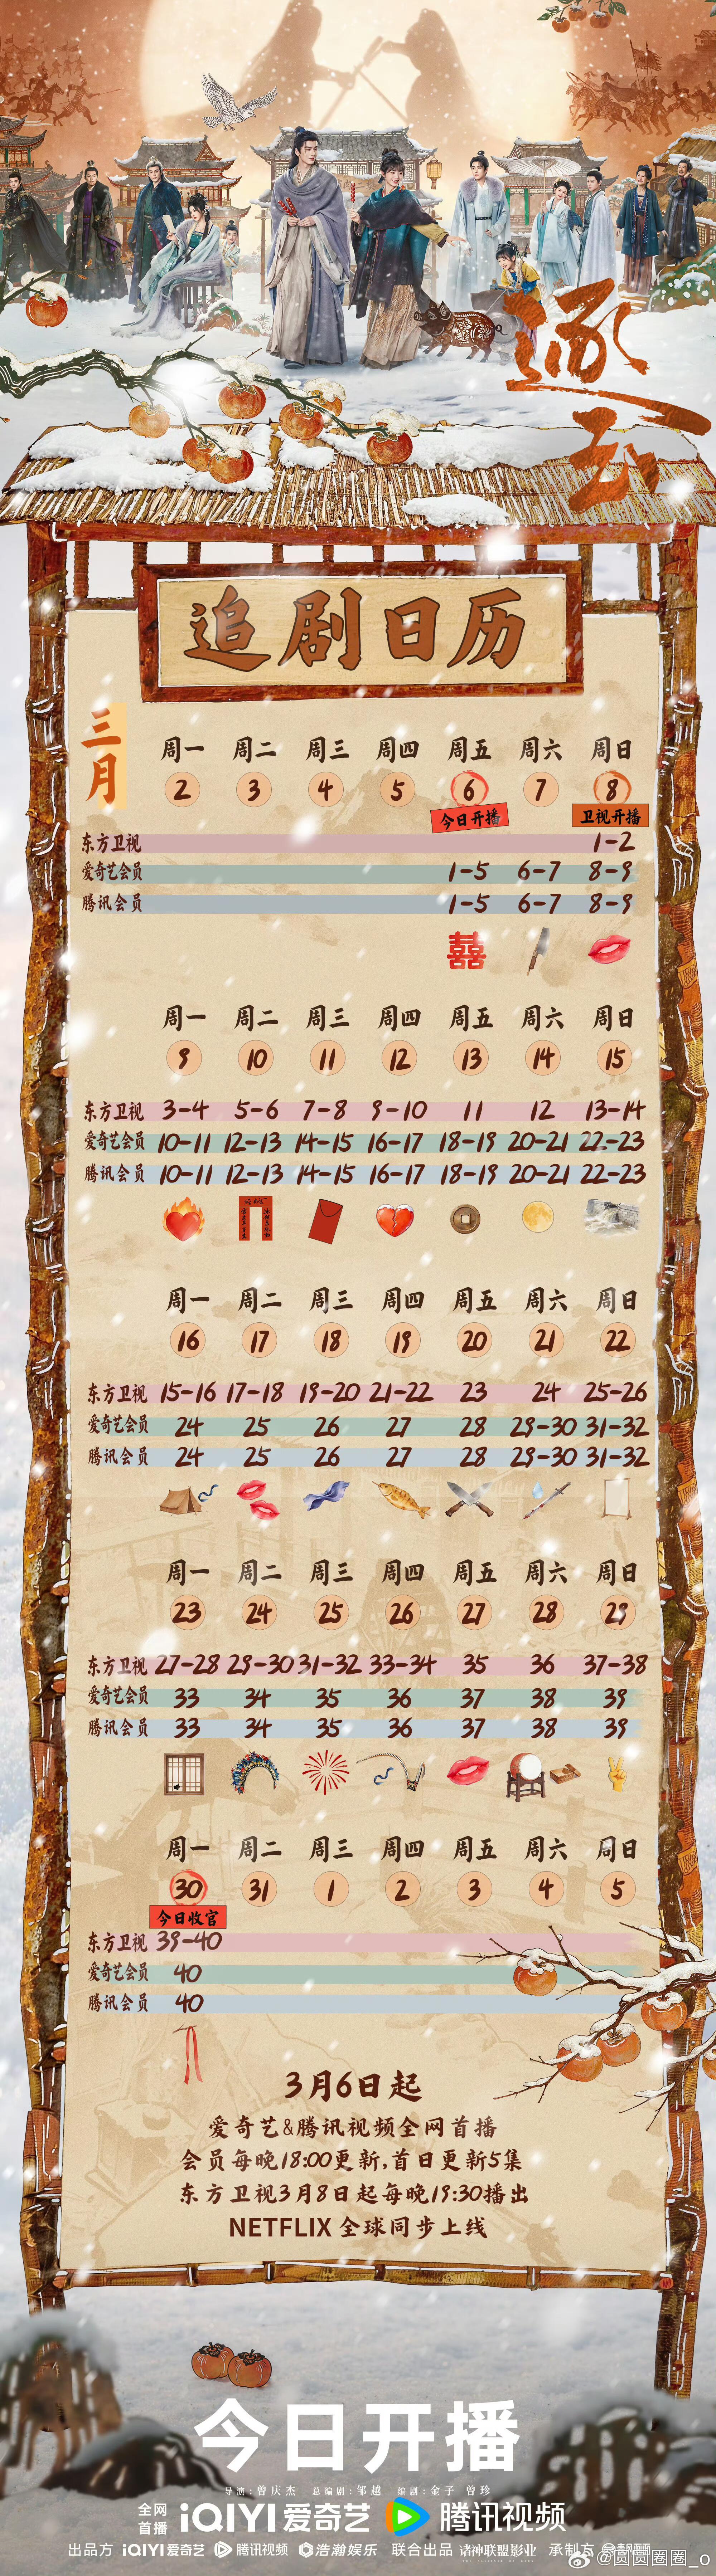 逐玉
追剧日历
三月
周一 周二 周三 周四 周五 周六 周日
2 3 4 5 6 7 8
今日开播 卫视开播
东方卫视 1-2
爱奇艺会员 1-5 6-7 8-9
腾讯会员 1-5 6-7 8-9
囍
周一 周二 周三 周四 周五 周六 周日
9 10 11 12 13 14 15
东方卫视 3-4 5-6 7-8 9-10 11 12 13-14
爱奇艺会员 10-11 12-13 14-15 16-17 18-19 20-21 22-23
腾讯会员 10-11 12-13 14-15 16-17 18-19 20-21 22-23
周一 周二 周三 周四 周五 周六 周日
16 17 18 19 20 21 22
东方卫视 15-16 17-18 19-20 21-22 23 24 25-26
爱奇艺会员 24 25 26 27 28 29-30 31-32
腾讯会员 24 25 26 27 28 29-30 31-32
周一 周二 周三 周四 周五 周六 周日
23 24 25 26 27 28 29
东方卫视 27-28 29-30 31-32 33-34 35 36 37-38
爱奇艺会员 33 34 35 36 37 38 39
腾讯会员 33 34 35 36 37 38 39
周一 周二 周三 周四 周五 周六 周日
30 31 1 2 3 4 5
今日收官
东方卫视 39-40
爱奇艺会员 40
腾讯会员 40
3月6日起
爱奇艺&腾讯视频全网首播
会员每晚18:00更新,首日更新5集
东方卫视3月8日起每晚19:30播出
NETFLIX 全球同步上线
今日开播
导演:曾庆杰 总编剧:邹越 编剧:金子 曾珍
全网首播 iQIYI爱奇艺 腾讯视频
出品方 iQIYI爱奇艺 腾讯视频 浩瀚娱乐 联合出品 诸神联盟影业 承制方
@圆圆圈圈_o